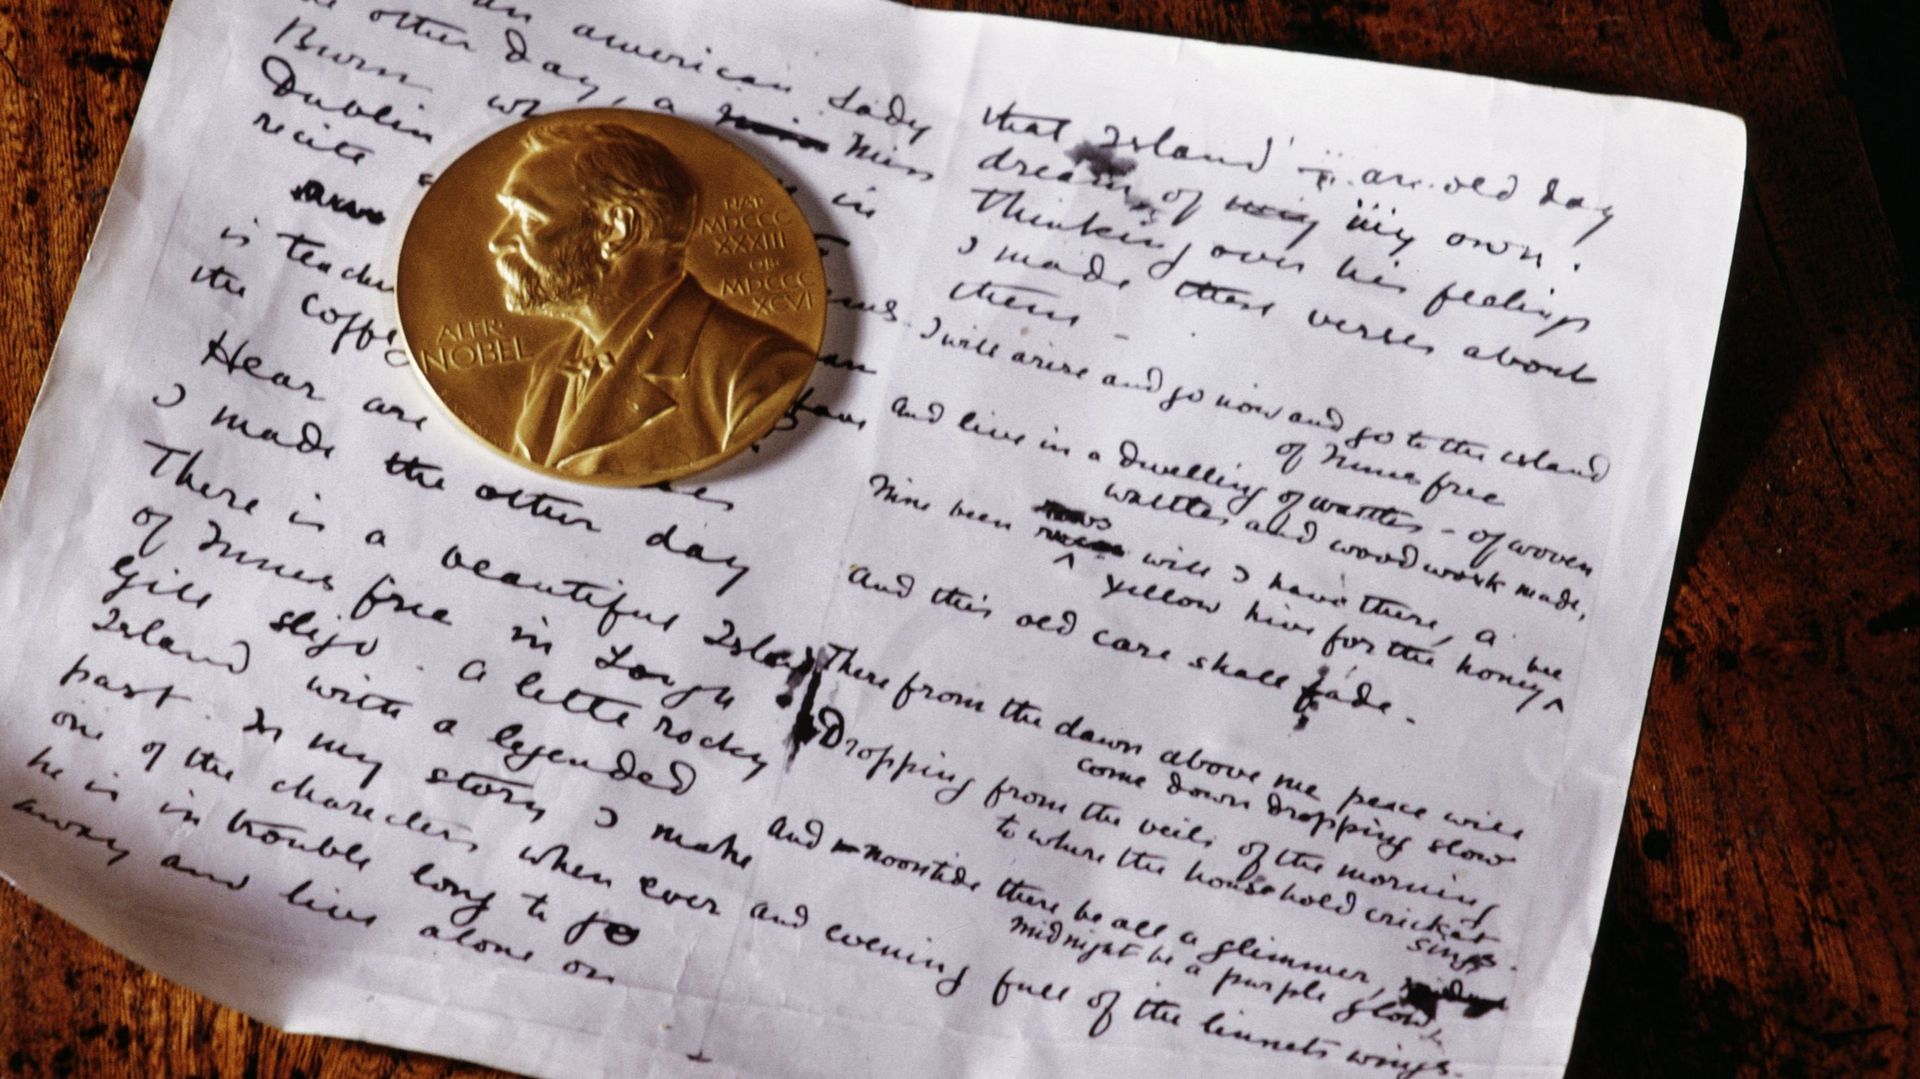 an american Lady
the other day, a Miss
Burn
Dublin in
recite
is
the coffe
Hear are
I made the other day
There is a beautiful Island
of Innis free in Lough
Gill Sligo. A little rocky
Island with a legended
past. In my story I make
one of the characters when ever
he is in trouble long to go
away and live alone on
ALFR·
NOBEL
NAT·
MDCCC
XXXIII
OB·
MDCCC
XCVI
that Island – an old day
dream of my my own.
Thinking over his feelings
I made these verses about
them –
I will arise and go now and go to the island
of Innis free
And live in a dwelling of wattles – of woven
wattles and wood work made,
Nine been rows will I have there, a
yellow hive for the honey bee
And this old care shall fade.
There from the dawn above me peace will
come down dropping slow
Dropping from the veils of the morning
to where the household cricket
sings.
And noontide there be all a glimmer,
midnight be a purple glow
And evening full of the linnets wings.